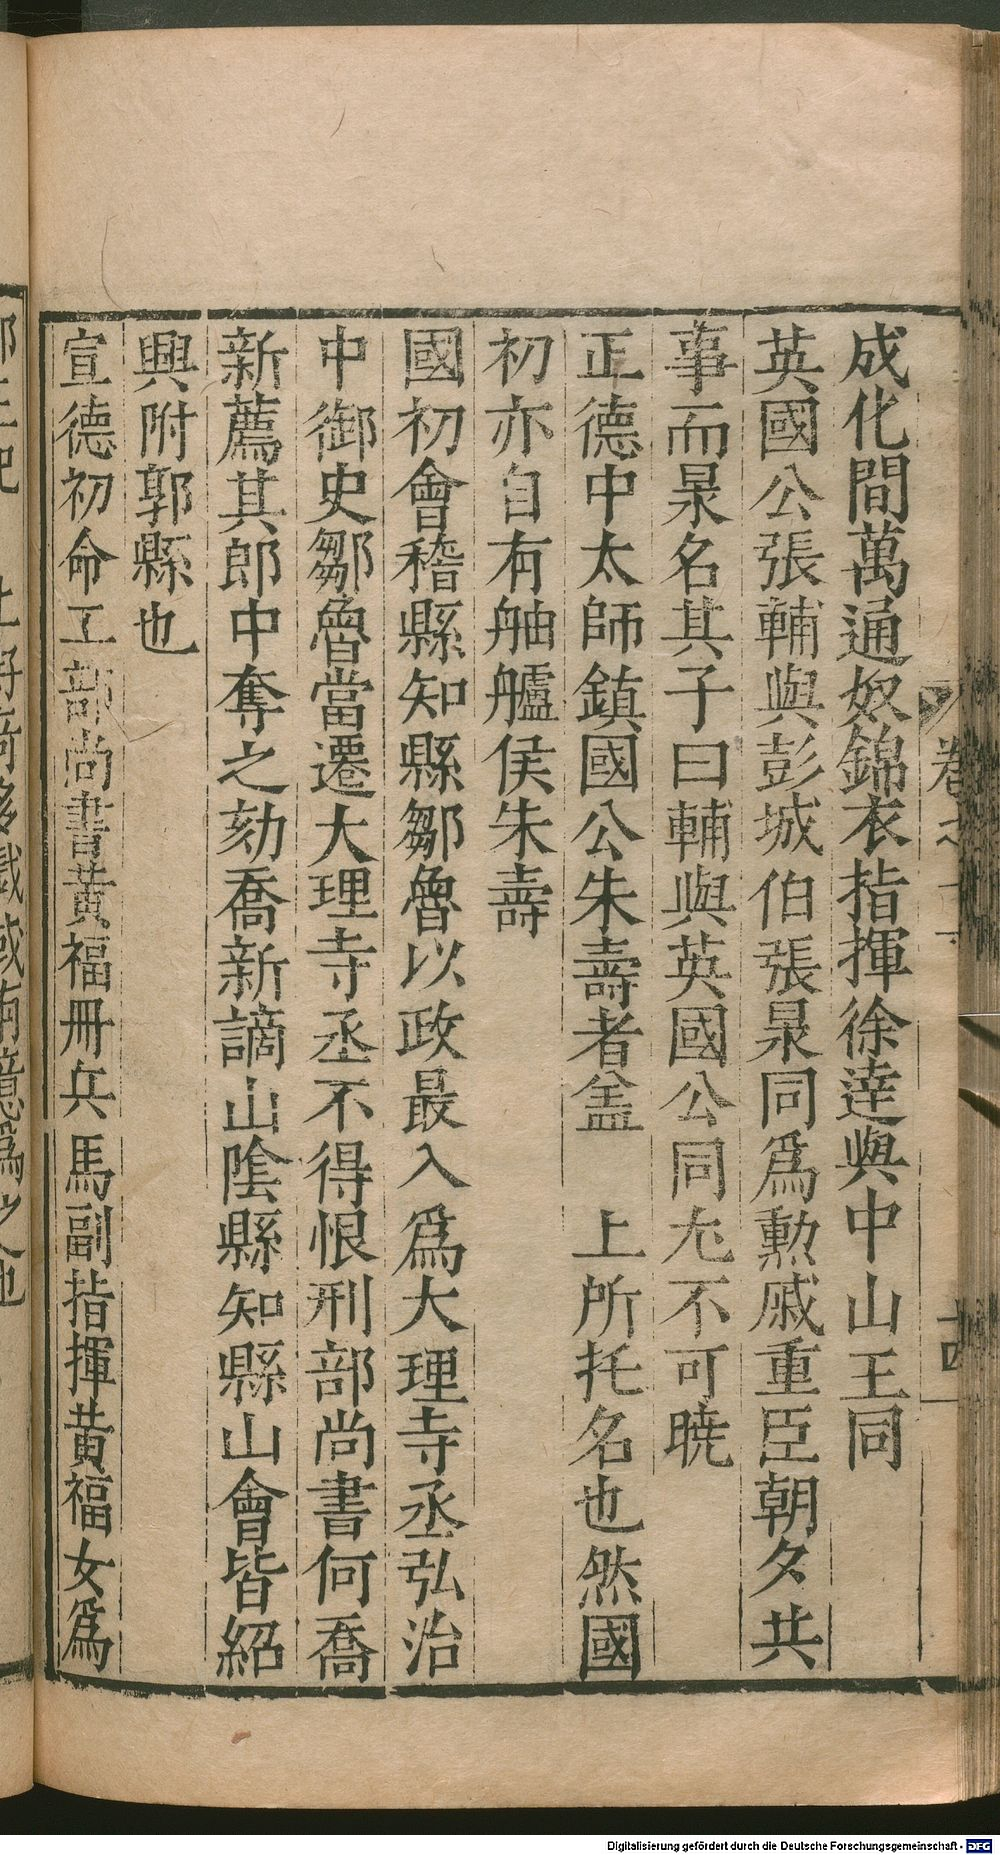 成化間萬通奴錦衣指揮徐達與中山王同
英國公張輔與彭城伯張泉同爲勲戚重臣朝夕共
事而泉名其子曰輔與英國公同尤不可曉
正德中太師鎮國公朱壽者盖　上所托名也然國
初亦自有舳艫侯朱壽
國初會稽縣知縣鄒魯以政最入爲大理寺丞弘治
中御史鄒魯當遷大理寺丞不得恨刑部尚書何喬
新薦其郎中奪之劾喬新謫山陰縣知縣山會皆紹
興附郭縣也
宣德初命工部尚書黄福冊兵馬副指揮黄福女爲
卷之
十四
Digitalisierung gefördert durch die Deutsche Forschungsgemeinschaft - DFG